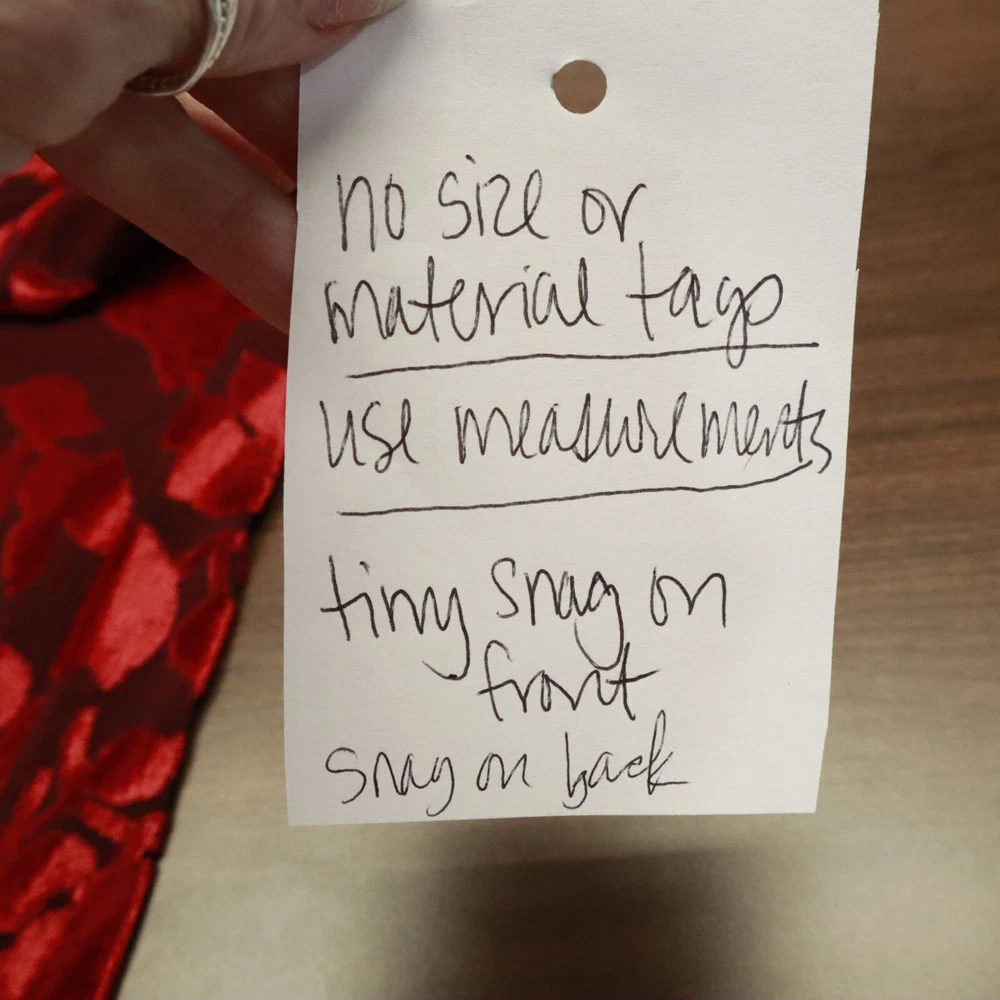 no size or
material tags
use measurements
tiny snag on
front
snag on back